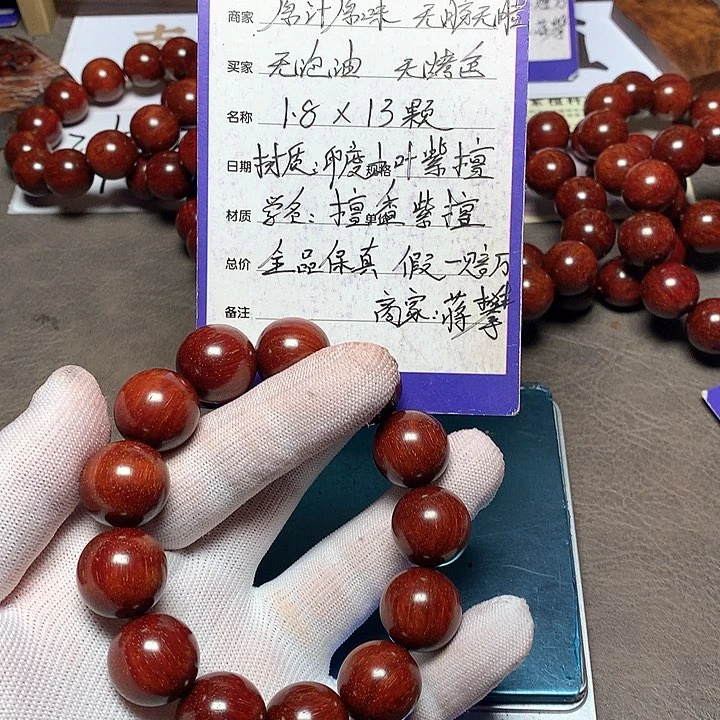 商家 原汁原味 无胶无蜡
买家 无泡油 无烤色
名称 1.8×13颗
日期 材质:印度规格叶紫擅
材质 学名:擅香紫擅
总价 全品保真 假一赔万
备注 商家:蒋攀